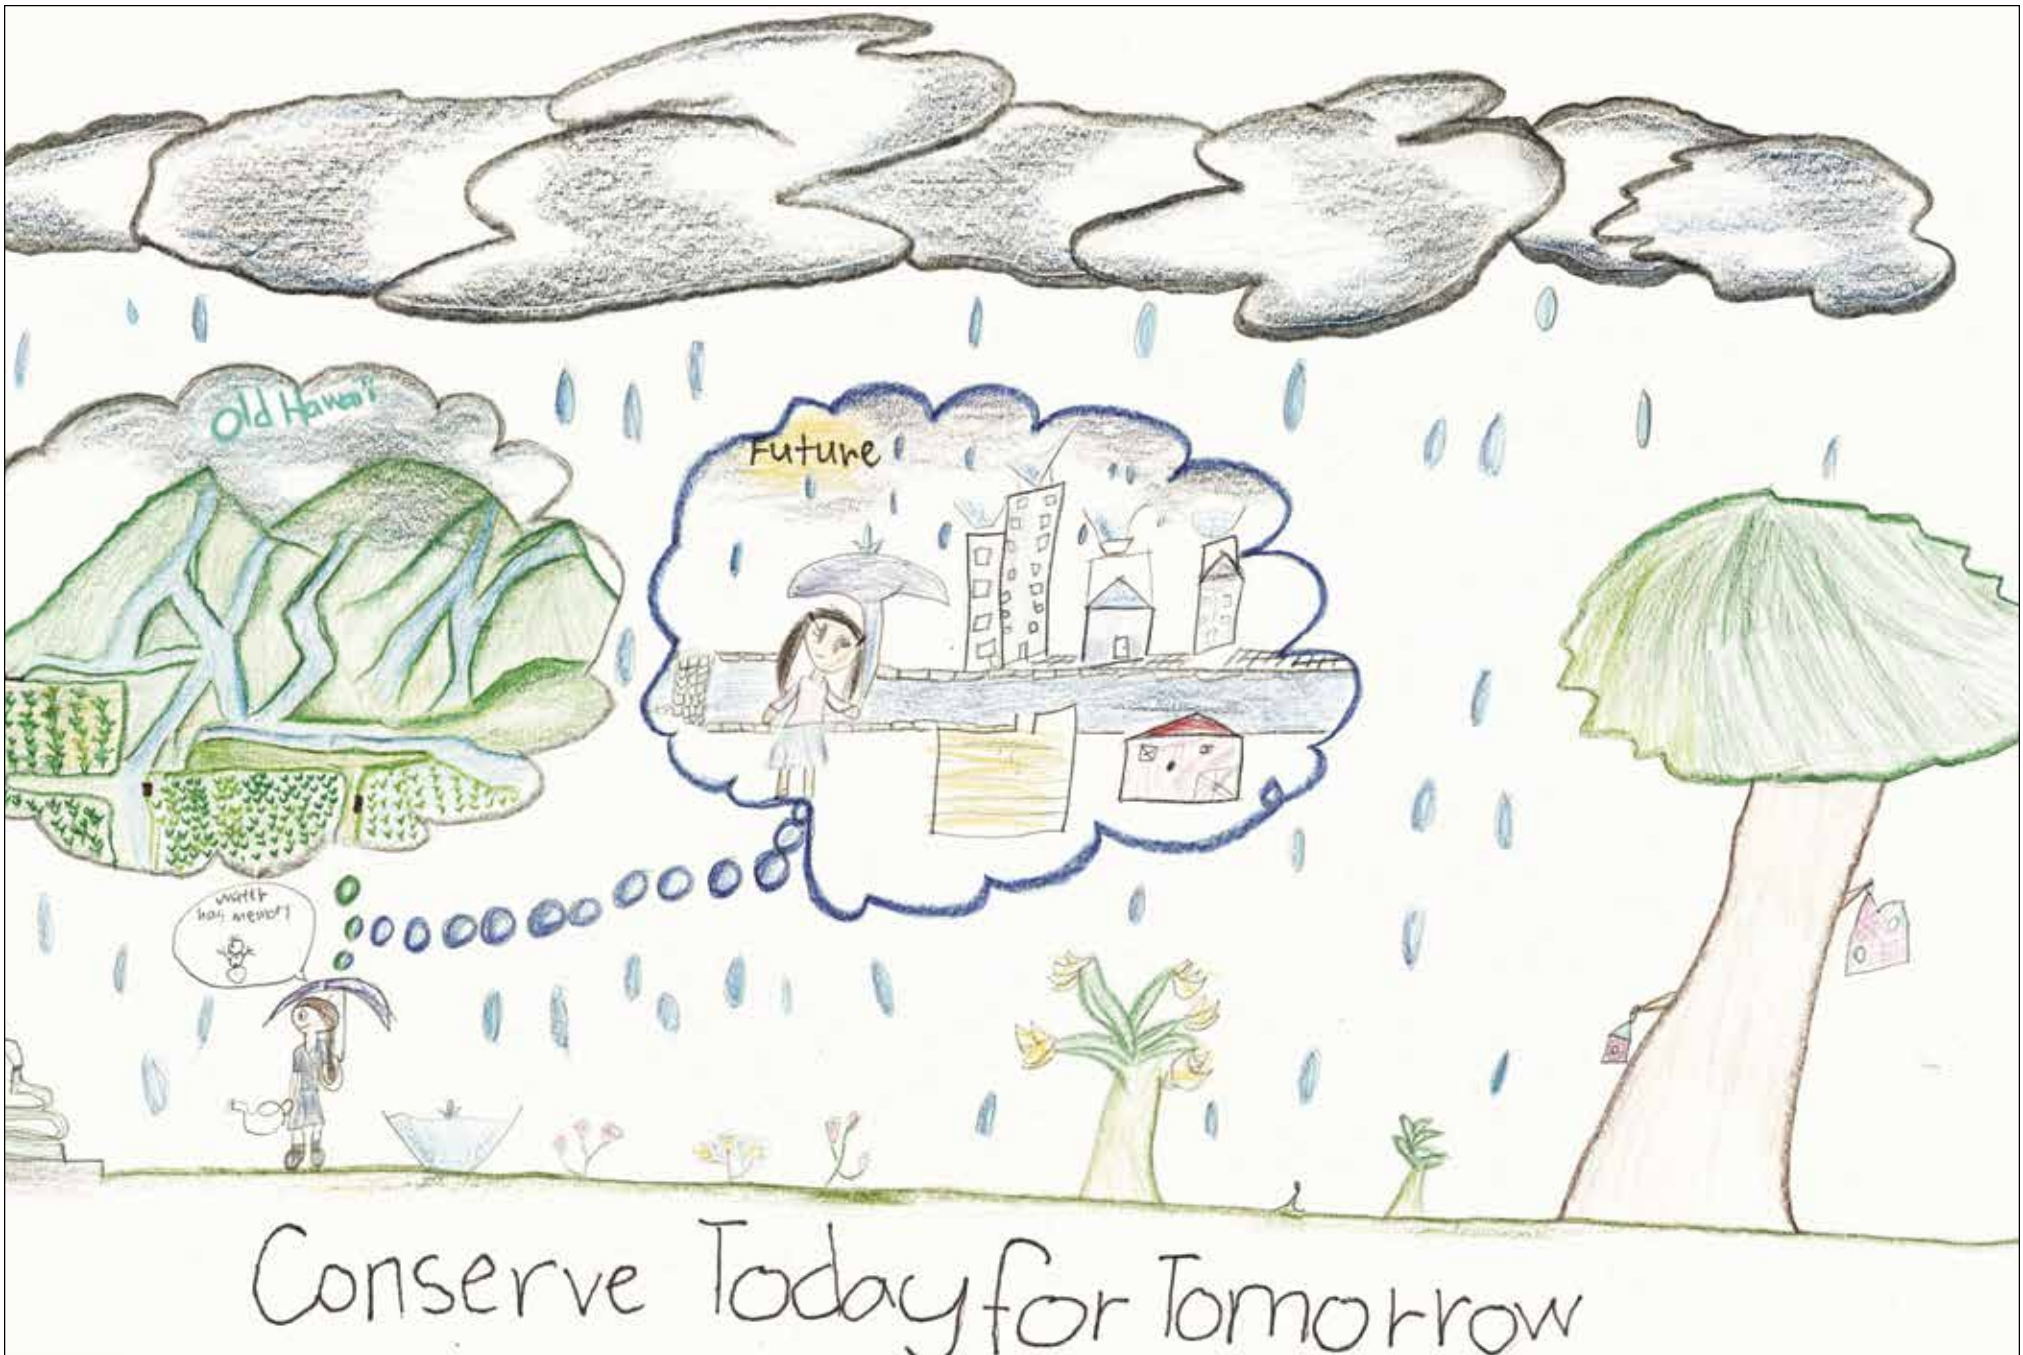 Old Hawai'i
Future
water
has memory
Conserve Today for Tomorrow